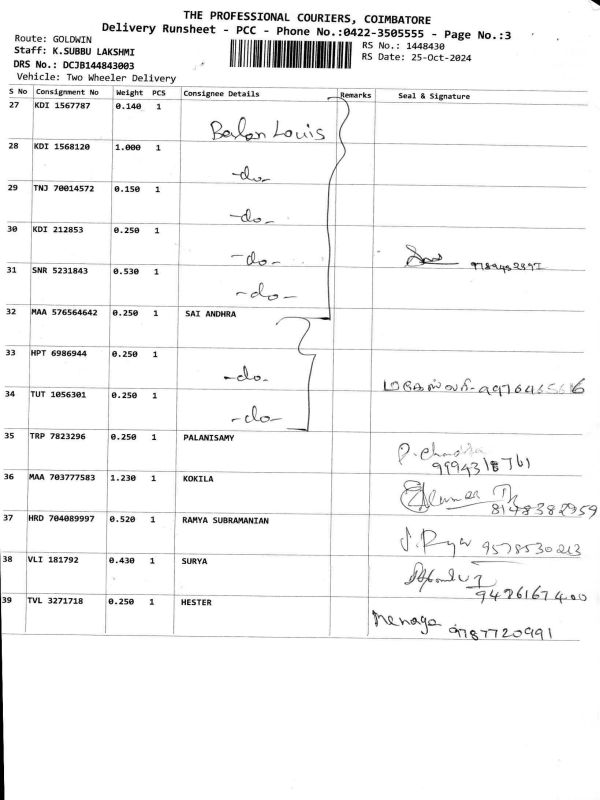 THE PROFESSIONAL COURIERS, COIMBATORE
Delivery Runsheet - PCC - Phone No.:0422-3505555 - Page No.:3
Route: GOLDWIN
RS No.: 1448430
Staff: K.SUBBU LAKSHMI
RS Date: 25-Oct-2024
DRS No.: DCJB144843003
Vehicle: Two Wheeler Delivery
S No Consignment No Weight PCS Consignee Details Remarks Seal & Signature
27 KDI 1567787 0.140 1
Louis
28 KDI 1568120 1.000 1
-do-
29 TNJ 70014572 0.150 1
-do-
30 KDI 212853 0.250 1
-do-
31 SNR 5231843 0.530 1
-do-
32 MAA 576564642 0.250 1 SAI ANDHRA
33 HPT 6986944 0.250 1
-do-
34 TUT 1056301 0.250 1
-do-
35 TRP 7823296 0.250 1 PALANISAMY
P. Chandra
9994318761
36 MAA 703777583 1.230 1 KOKILA
8148382959
37 HRD 704089997 0.520 1 RAMYA SUBRAMANIAN
9578530213
38 VLI 181792 0.430 1 SURYA
39 TVL 3271718 0.250 1 HESTER
Menaga 9787720991